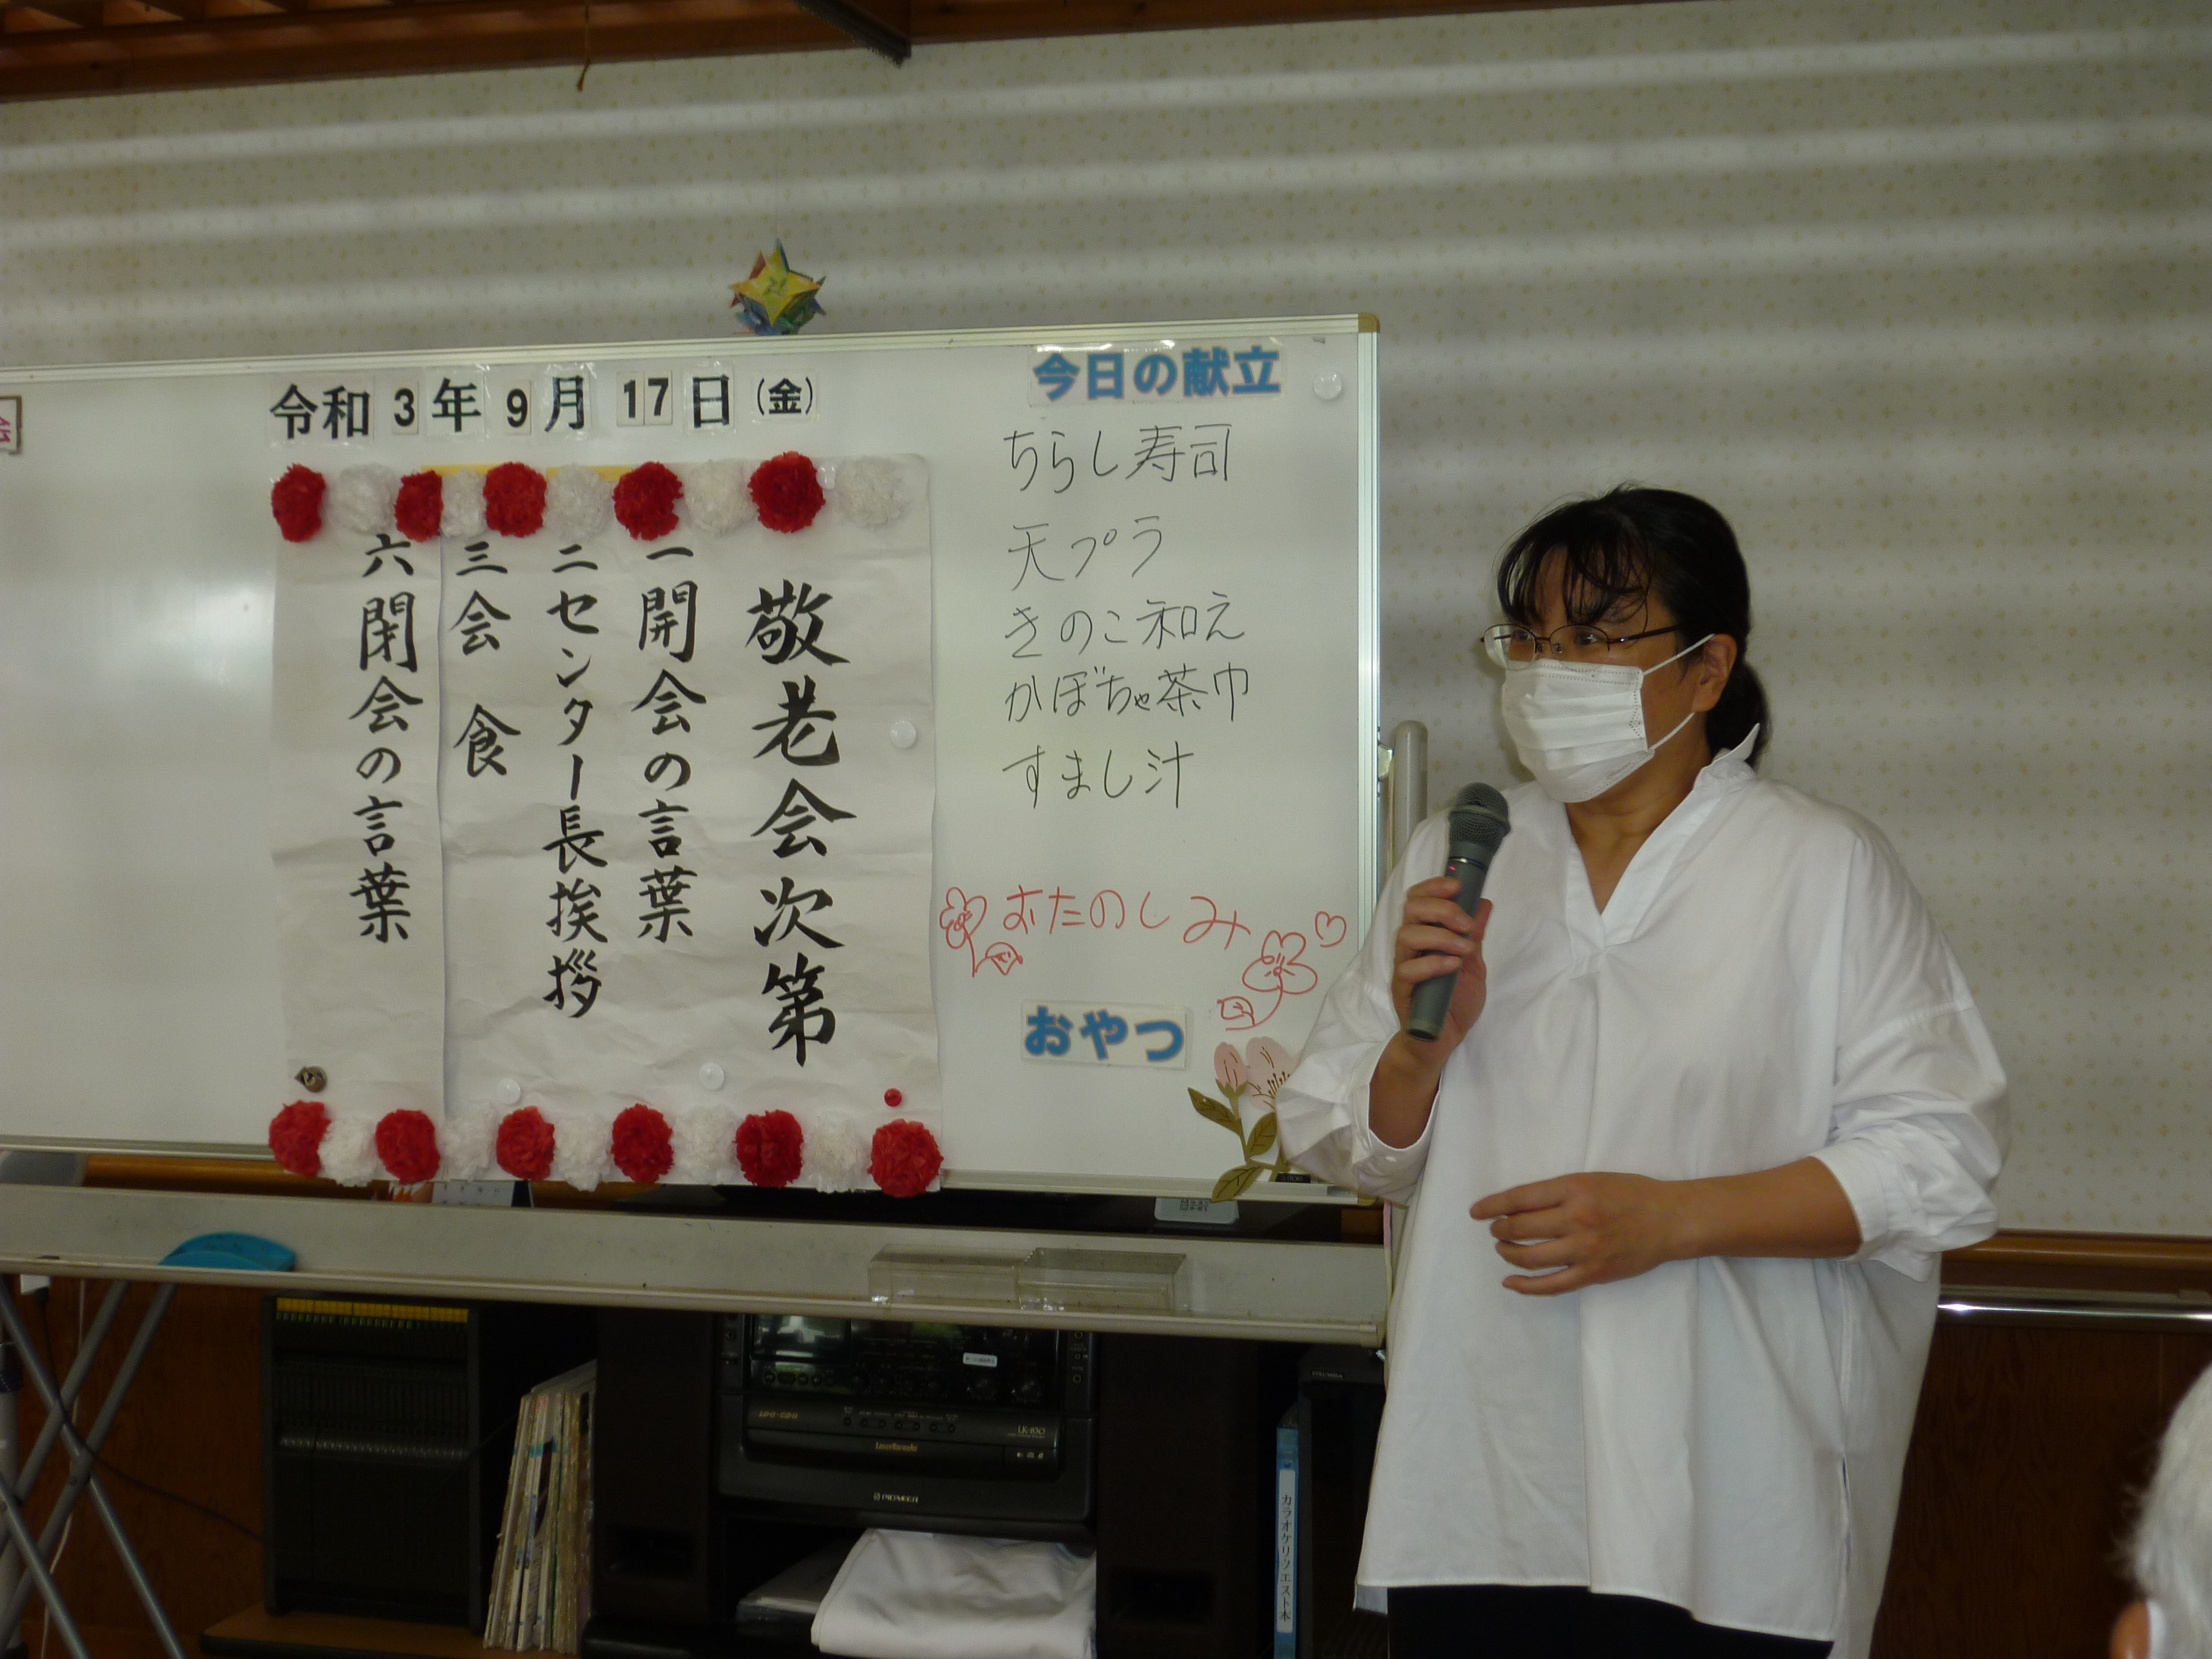 令和3年9月17日(金)
敬老会次第
一 開会の言葉
二 センター長挨拶
三 会 食
六 閉会の言葉
今日の献立
ちらし寿司
天プラ
きのこ和え
かぼちゃ茶巾
すまし汁
おたのしみ
おやつ
LK-830
LaserKaraoke
PIONEER
COLUMBIA
カラオケリクエスト本